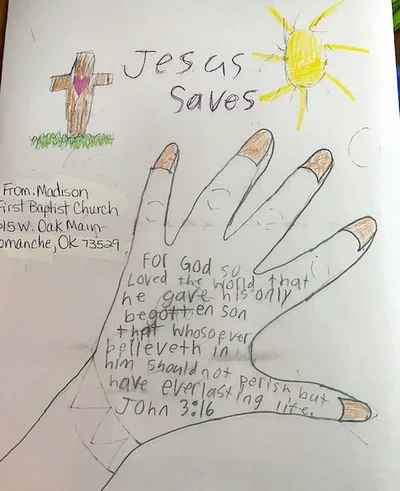 Jesus
Saves
From: Madison
First Baptist Church
515 W. Oak Main-
omanche, OK 73529
FOR God so
Loved the world that
he gave his only
begotten son
that whosoever
believeth in
him should not perish but
have everlasting life.
John 3:16